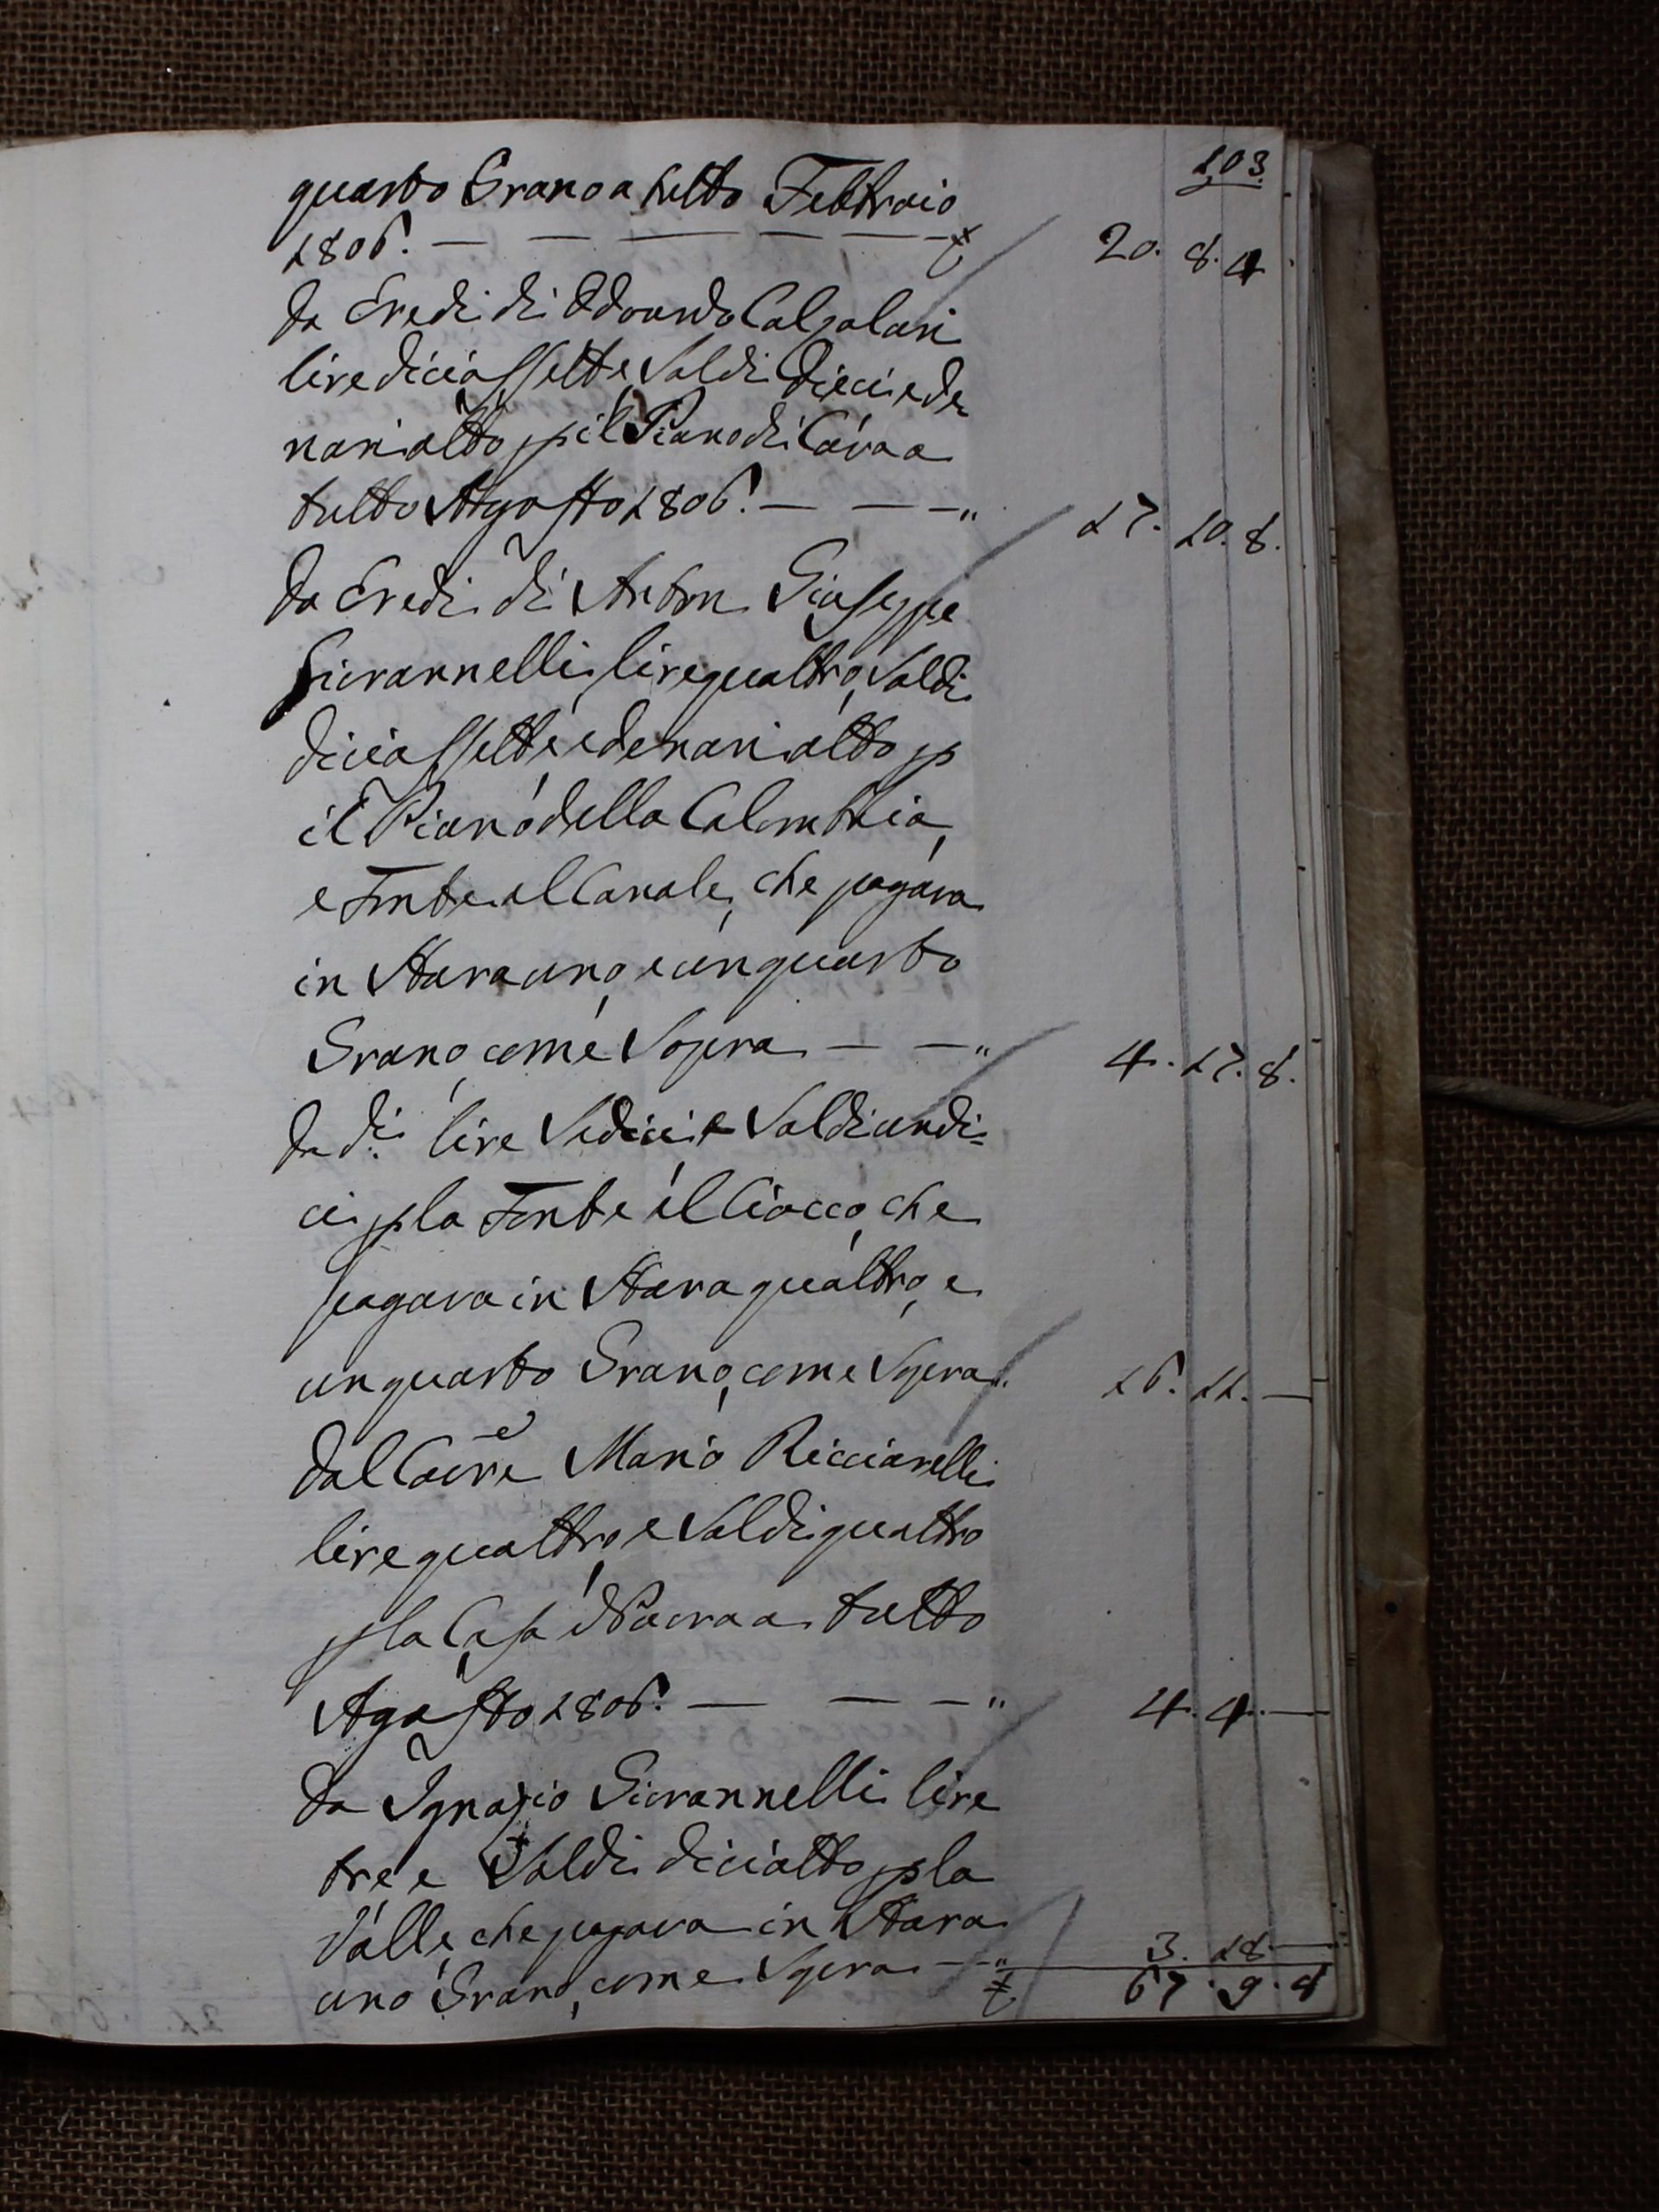 103.
quarto Grano a tutto Febbraio
1806. — — — — — £ 20. 8. 4
Da Eredi di Odoardo Calzolari
lire diciassette, soldi dieci e de
nari otto p il Piano di Cava a
tutto Agosto 1806. — — — " 17. 10. 8.
Da Eredi di Anton Giuseppe
Giovannelli, lire quattro, soldi
diciassette, e denari otto p
il Piano della Colombaia,
e Fonte al Canale, che pagava
in Stara uno, e un quarto
Grano, come sopra — — " 4. 17. 8.
Da di lire sedici, e soldi undi=
ci p la Fonte il Ciocco, che
pagava in Stara quattro, e
un quarto Grano, come sopra " 16. 11. —
Dal Mario Ricciarelli
lire quattro, e soldi quattro
p la Casa Nuova a tutto
Agosto 1806. — — — " 4. 4. —
Da Ignazio Giovannelli lire
tre, e soldi diciotto p la
Valle, che pagava in Stara
uno Grano, come sopra — — " 3. 18 —
£ 67. 9. 8